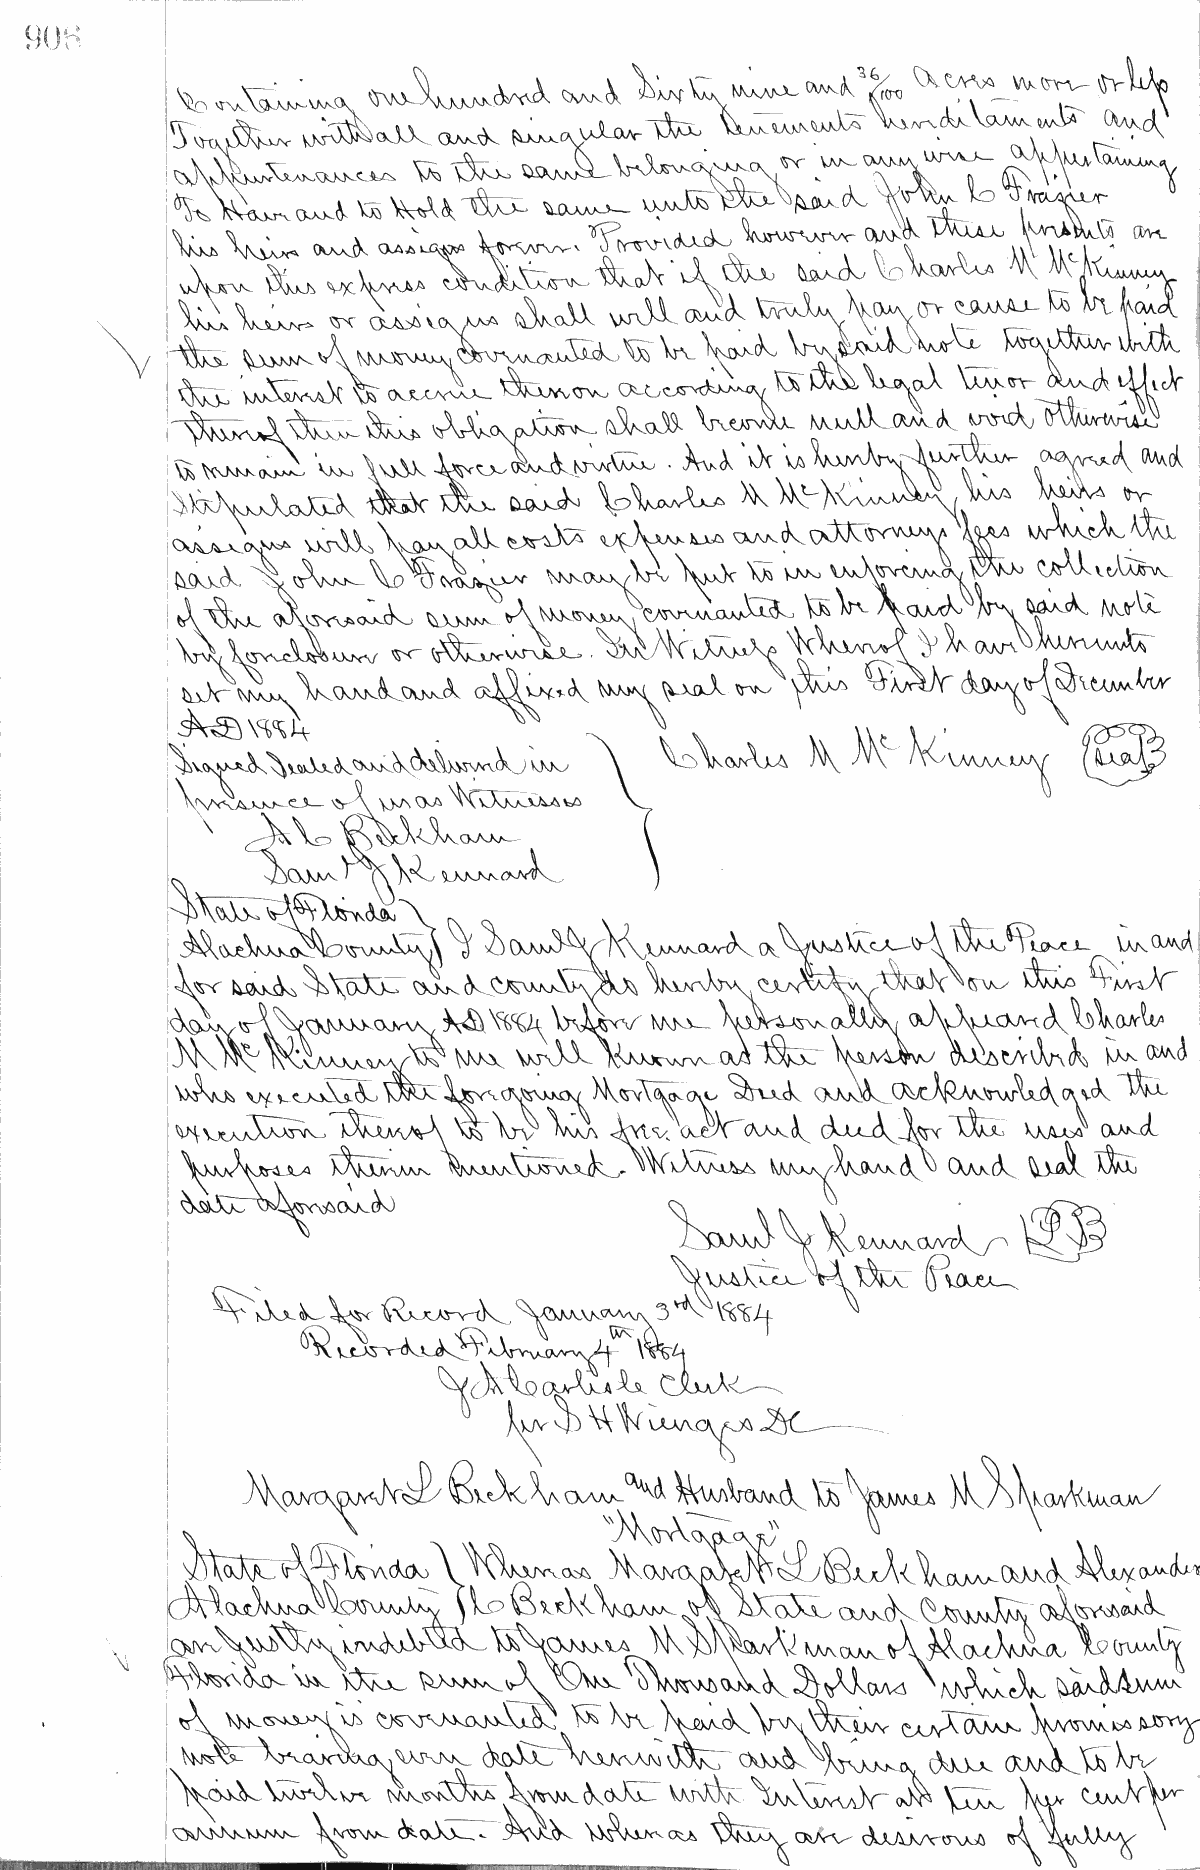 908
Containing one hundred and Sixty nine and 36/100 Acres more or less
Together with all and singular the tenements hereditaments and
appurtenances to the same belonging or in any wise appertaining
To Have and to Hold the same unto the said John C Frazier
his heirs and assigns forever. Provided however and these presents are
upon this express condition that if the said Charles M McKinney
his heirs or assigns shall well and truly pay or cause to be paid
the sum of money covenanted to be paid by said note together with
the interest to accrue thereon according to the legal tenor and effect
thereof then this obligation shall become null and void otherwise
to remain in full force and virtue. And it is hereby further agreed and
Stipulated that the said Charles M McKinney his heirs or
assigns will pay all costs expenses and attorneys fees which the
said John C Frazier may be put to in enforcing the collection
of the aforesaid sum of money covenanted to be paid by said note
by foreclosure or otherwise. In Witness Whereof I have hereunto
set my hand and affixed my seal on this First day of December
AD 1884
Signed Sealed and delivered in } Charles M McKinney (Seal)
presence of us as Witnesses
A C Beckham
Saml J Kennard
State of Florida }
Alachua County } I Saml J Kennard a Justice of the Peace in and
for said State and county do hereby certify that on this First
day of January AD 1884 before me personally appeared Charles
M McKinney to me well known as the person described in and
who executed the foregoing Mortgage Deed and acknowledged the
execution thereof to be his free act and deed for the uses and
purposes therein mentioned. Witness my hand and seal the
date aforesaid
Saml J Kennard
Justice of the Peace
Filed for Record January 3rd 1884
Recorded February 4th 1884
J A Carlisle Clerk
per S H Wienges DC
Margaret L Beckham and Husband to James M Sparkman
"Mortgage"
State of Florida } Whereas Margaret L Beckham and Alexander
Alachua County } C Beckham of State and County aforesaid
are Justly indebted to James M Sparkman of Alachua County
Florida in the sum of One Thousand Dollars which said sum
of money is covenanted to be paid by their certain promissory
note bearing even date herewith and being due and to be
paid twelve months from date with Interest at ten per cent per
annum from date. And whereas they are desirous of fully